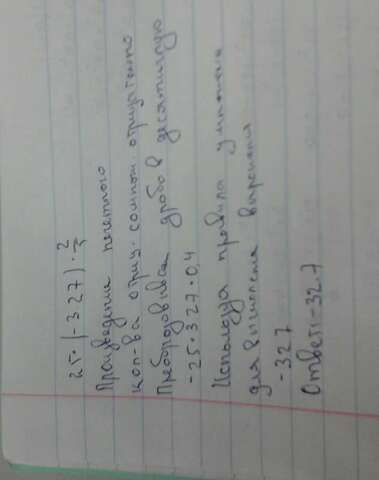 25 · (-327) · 2/5
Произведение нечетного
кол-ва отриц. сомнож. отрицательно
Преборозовываем дробь в десятичную
-25·327·0,4
Используя правила умножения
для вычисления выражения
-327
Ответ: -32.7